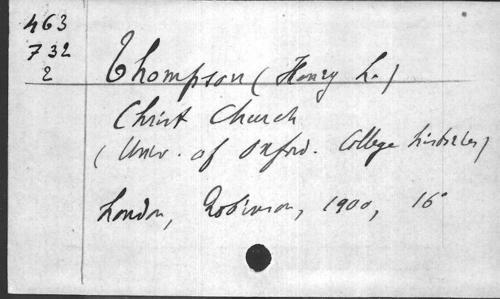 463
732
2
Thompson (Henry L.)
Christ Church
(Univ. of Oxford. College histories)
London, Robinson, 1900, 16°